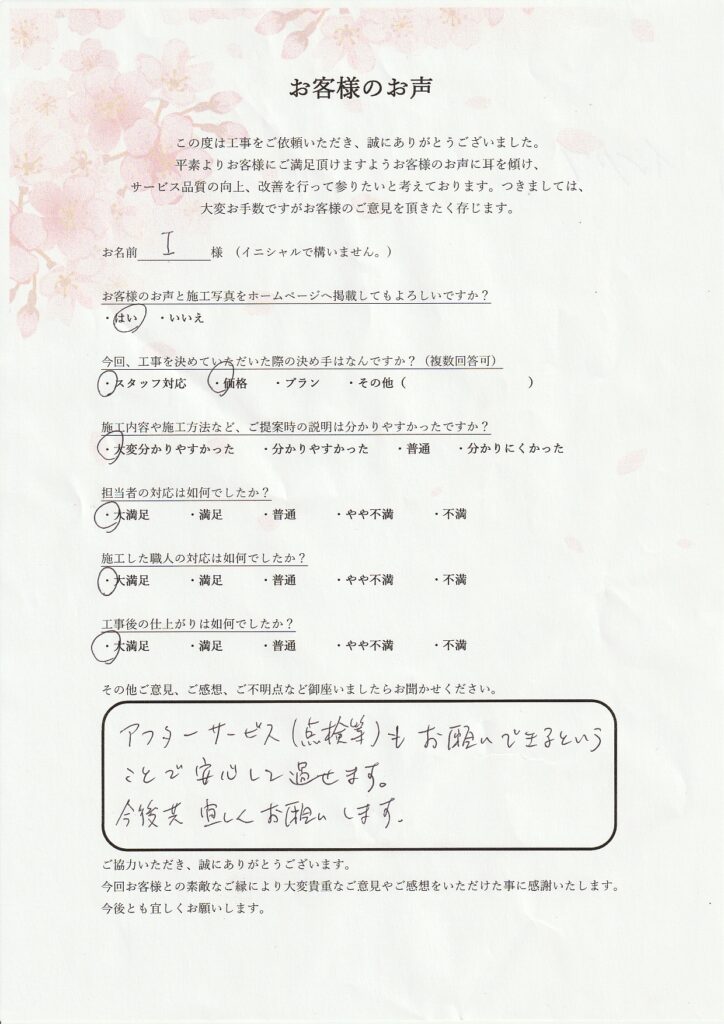 お客様のお声
この度は工事をご依頼いただき、誠にありがとうございました。
平素よりお客様にご満足頂けますようお客様のお声に耳を傾け、
サービス品質の向上、改善を行って参りたいと考えております。つきましては、
大変お手数ですがお客様のご意見を頂きたく存じます。
お名前 I 様 （イニシャルで構いません。）
お客様のお声と施工写真をホームページへ掲載してもよろしいですか？
・はい ・いいえ
今回、工事を決めていただいた際の決め手はなんですか？（複数回答可）
・スタッフ対応 ・価格 ・プラン ・その他（ ）
施工内容や施工方法など、ご提案時の説明は分かりやすかったですか？
・大変分かりやすかった ・分かりやすかった ・普通 ・分かりにくかった
担当者の対応は如何でしたか？
・大満足 ・満足 ・普通 ・やや不満 ・不満
施工した職人の対応は如何でしたか？
・大満足 ・満足 ・普通 ・やや不満 ・不満
工事後の仕上がりは如何でしたか？
・大満足 ・満足 ・普通 ・やや不満 ・不満
その他ご意見、ご感想、ご不明点など御座いましたらお聞かせください。
アフターサービス（点検等）もお願いできるという
ことで安心して過せます。
今後共宜しくお願いします.
ご協力いただき、誠にありがとうございます。
今回お客様との素敵なご縁により大変貴重なご意見やご感想をいただけた事に感謝いたします。
今後とも宜しくお願いします。